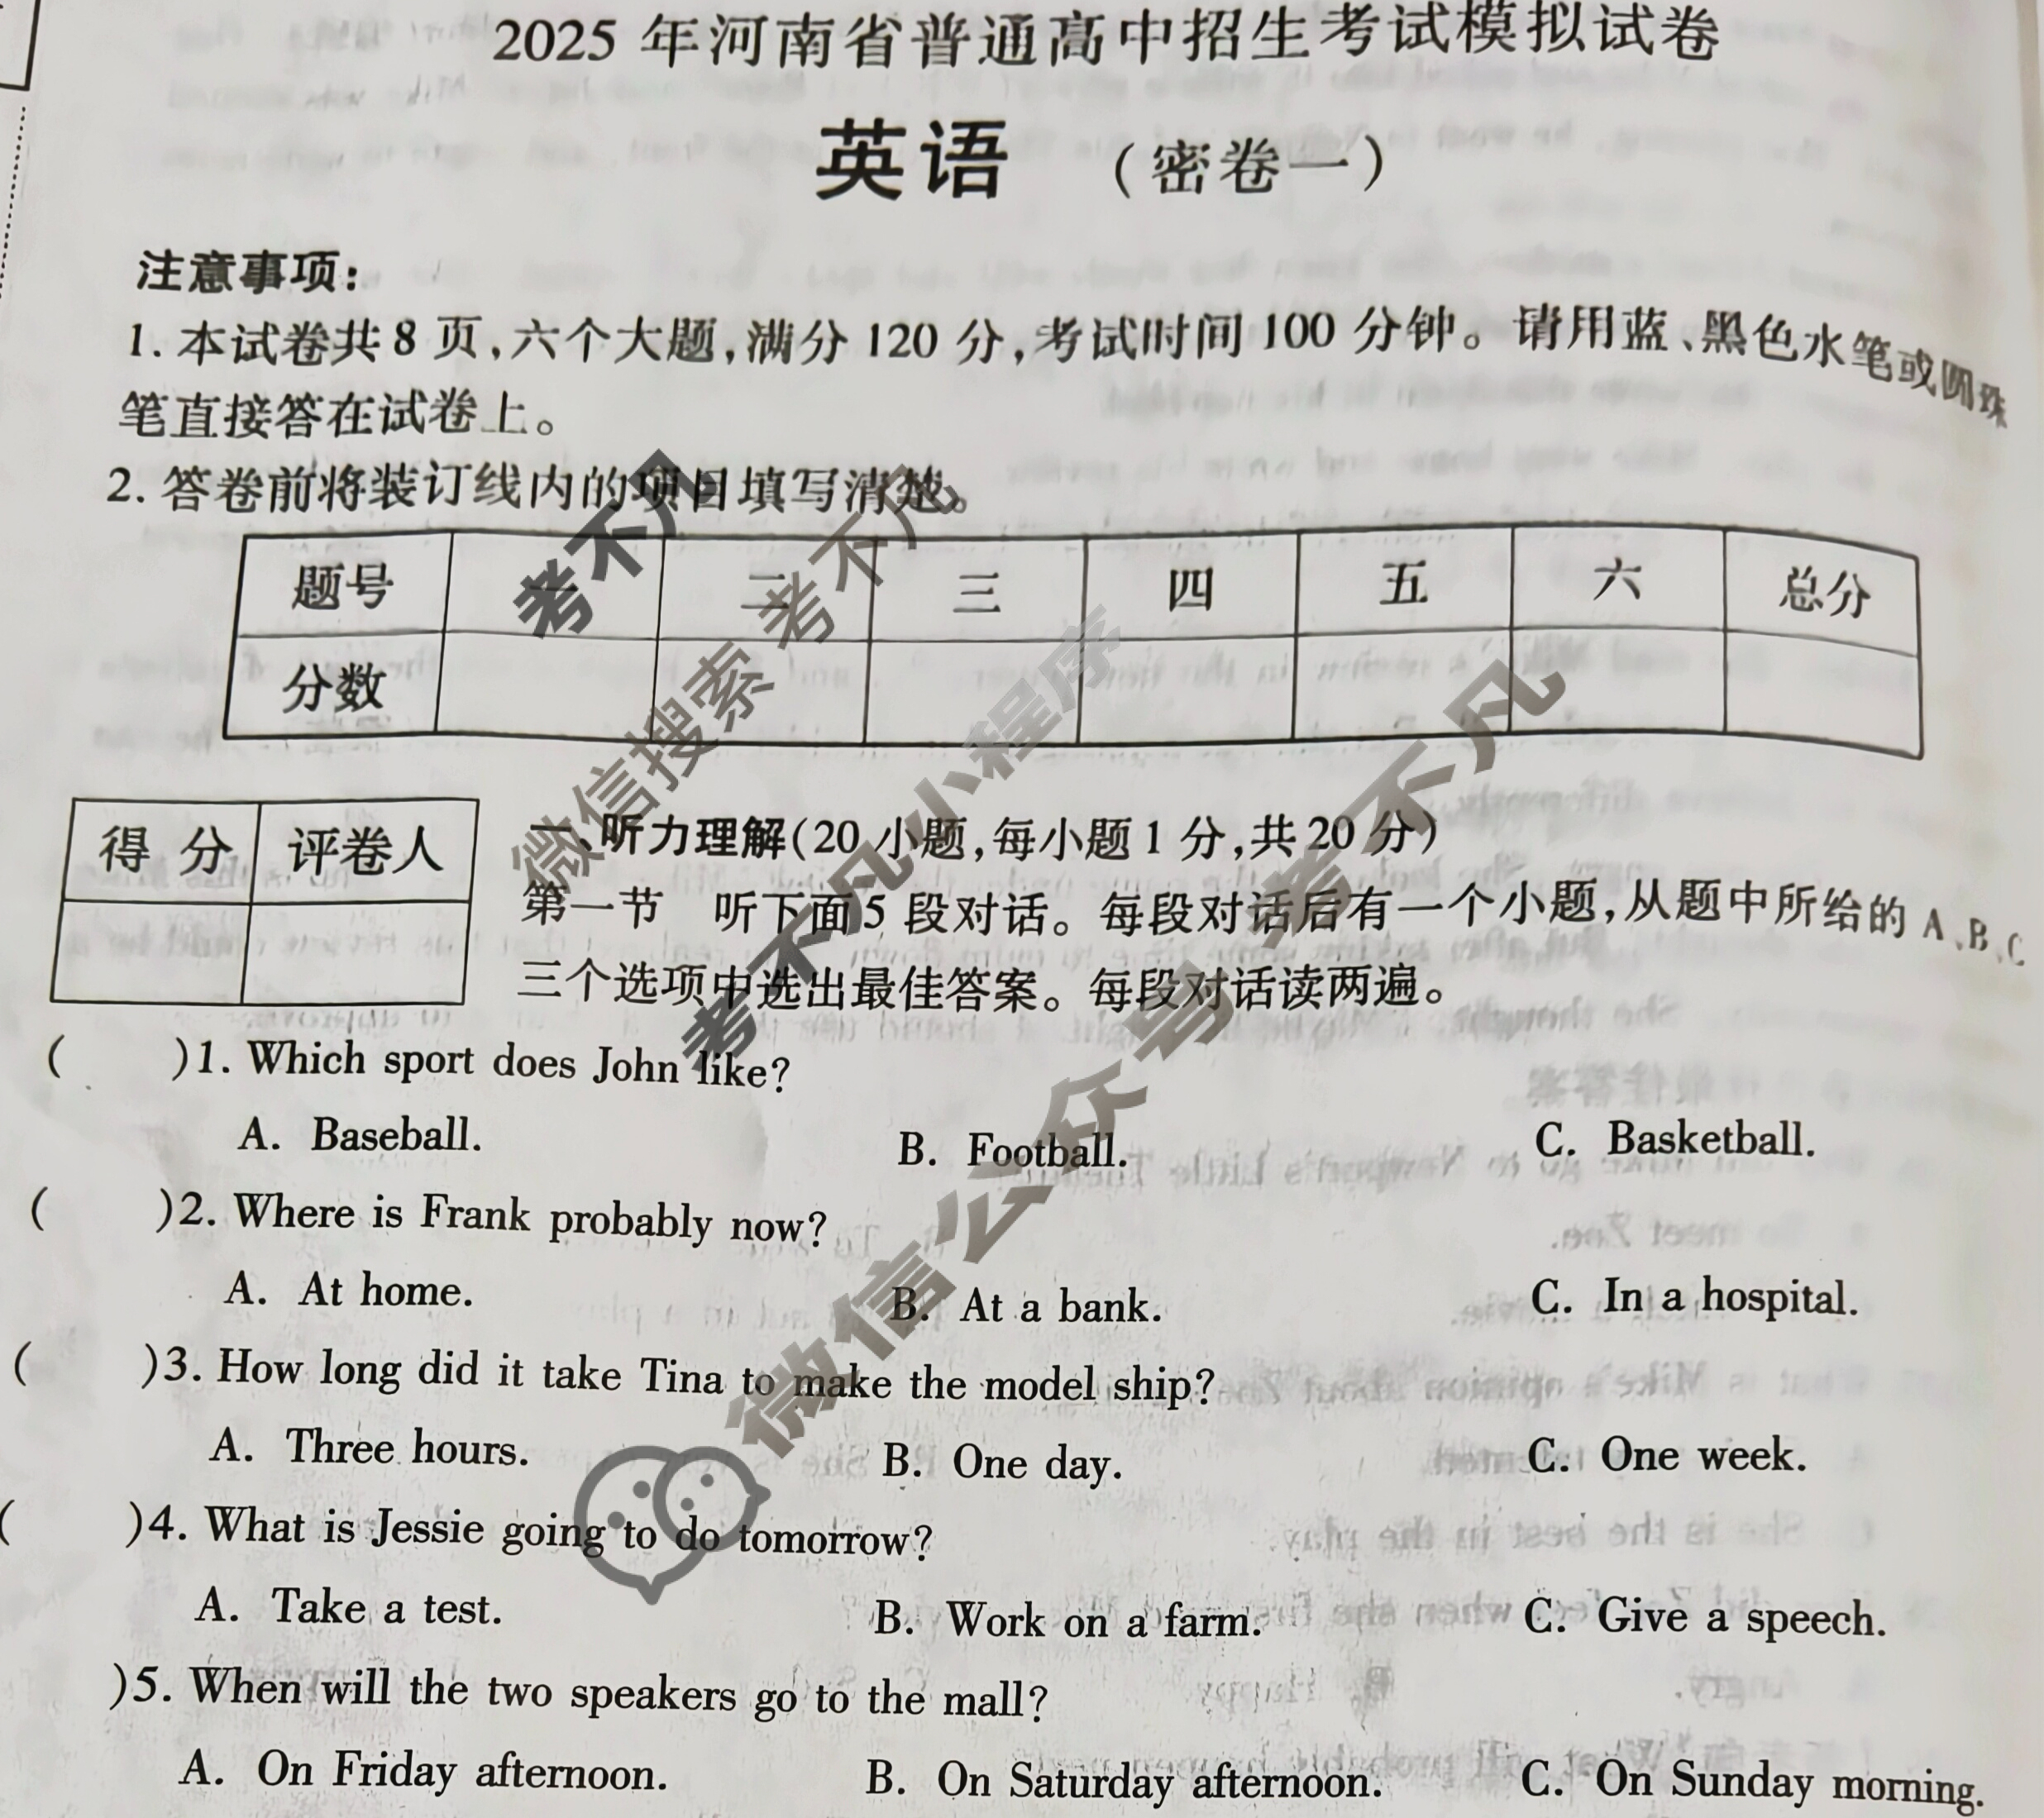 2025 年河南省普通高中招生考试模拟试卷
英语 (密卷一)
注意事项:
1. 本试卷共 8 页,六个大题,满分 120 分,考试时间 100 分钟。请用蓝、黑色水笔或圆珠
笔直接答在试卷上。
2. 答卷前将装订线内的项目填写清楚。
题号 一 二 三 四 五 六 总分
分数
得 分 评卷人
一、听力理解(20 小题,每小题 1 分,共 20 分)
第一节 听下面 5 段对话。每段对话后有一个小题,从题中所给的 A、B、C
三个选项中选出最佳答案。每段对话读两遍。
( )1. Which sport does John like?
A. Baseball. B. Football. C. Basketball.
( )2. Where is Frank probably now?
A. At home. B. At a bank. C. In a hospital.
( )3. How long did it take Tina to make the model ship?
A. Three hours. B. One day. C. One week.
( )4. What is Jessie going to do tomorrow?
A. Take a test. B. Work on a farm. C. Give a speech.
)5. When will the two speakers go to the mall?
A. On Friday afternoon. B. On Saturday afternoon. C. On Sunday morning.
考不凡
微信搜索 考不凡
考不凡小程序
微信公众号 考不凡